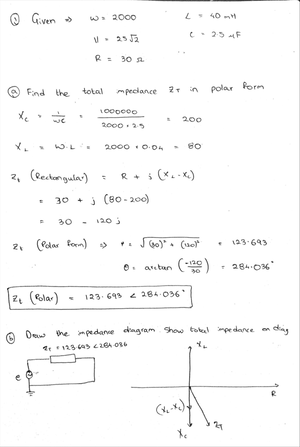 ① Given ⇒ W = 2000 L = 40 mH
V = 25√2 C = 2.5 μF
R = 30 Ω
ⓐ Find the total impedance ZT in polar form
Xc = 1/wc = 1000000/2000 × 2.5 = 200
XL = W.L = 2000 × 0.04 = 80
Zt (Rectangular) = R + j (XL - XL)
= 30 + j (80 - 200)
= 30 - 120 j
Zt (Polar form) ⇒ r = √(30)² + (120)² = 123.693
θ = arctan (-120/30) = 284.036°
Zt (Polar) = 123.693 ∠ 284.036°
ⓑ Draw the impedance diagram show total impedance on diag
Zt = 123.693 ∠ 284.036
XL
e
R
(XL-XL)
Xc
ZT